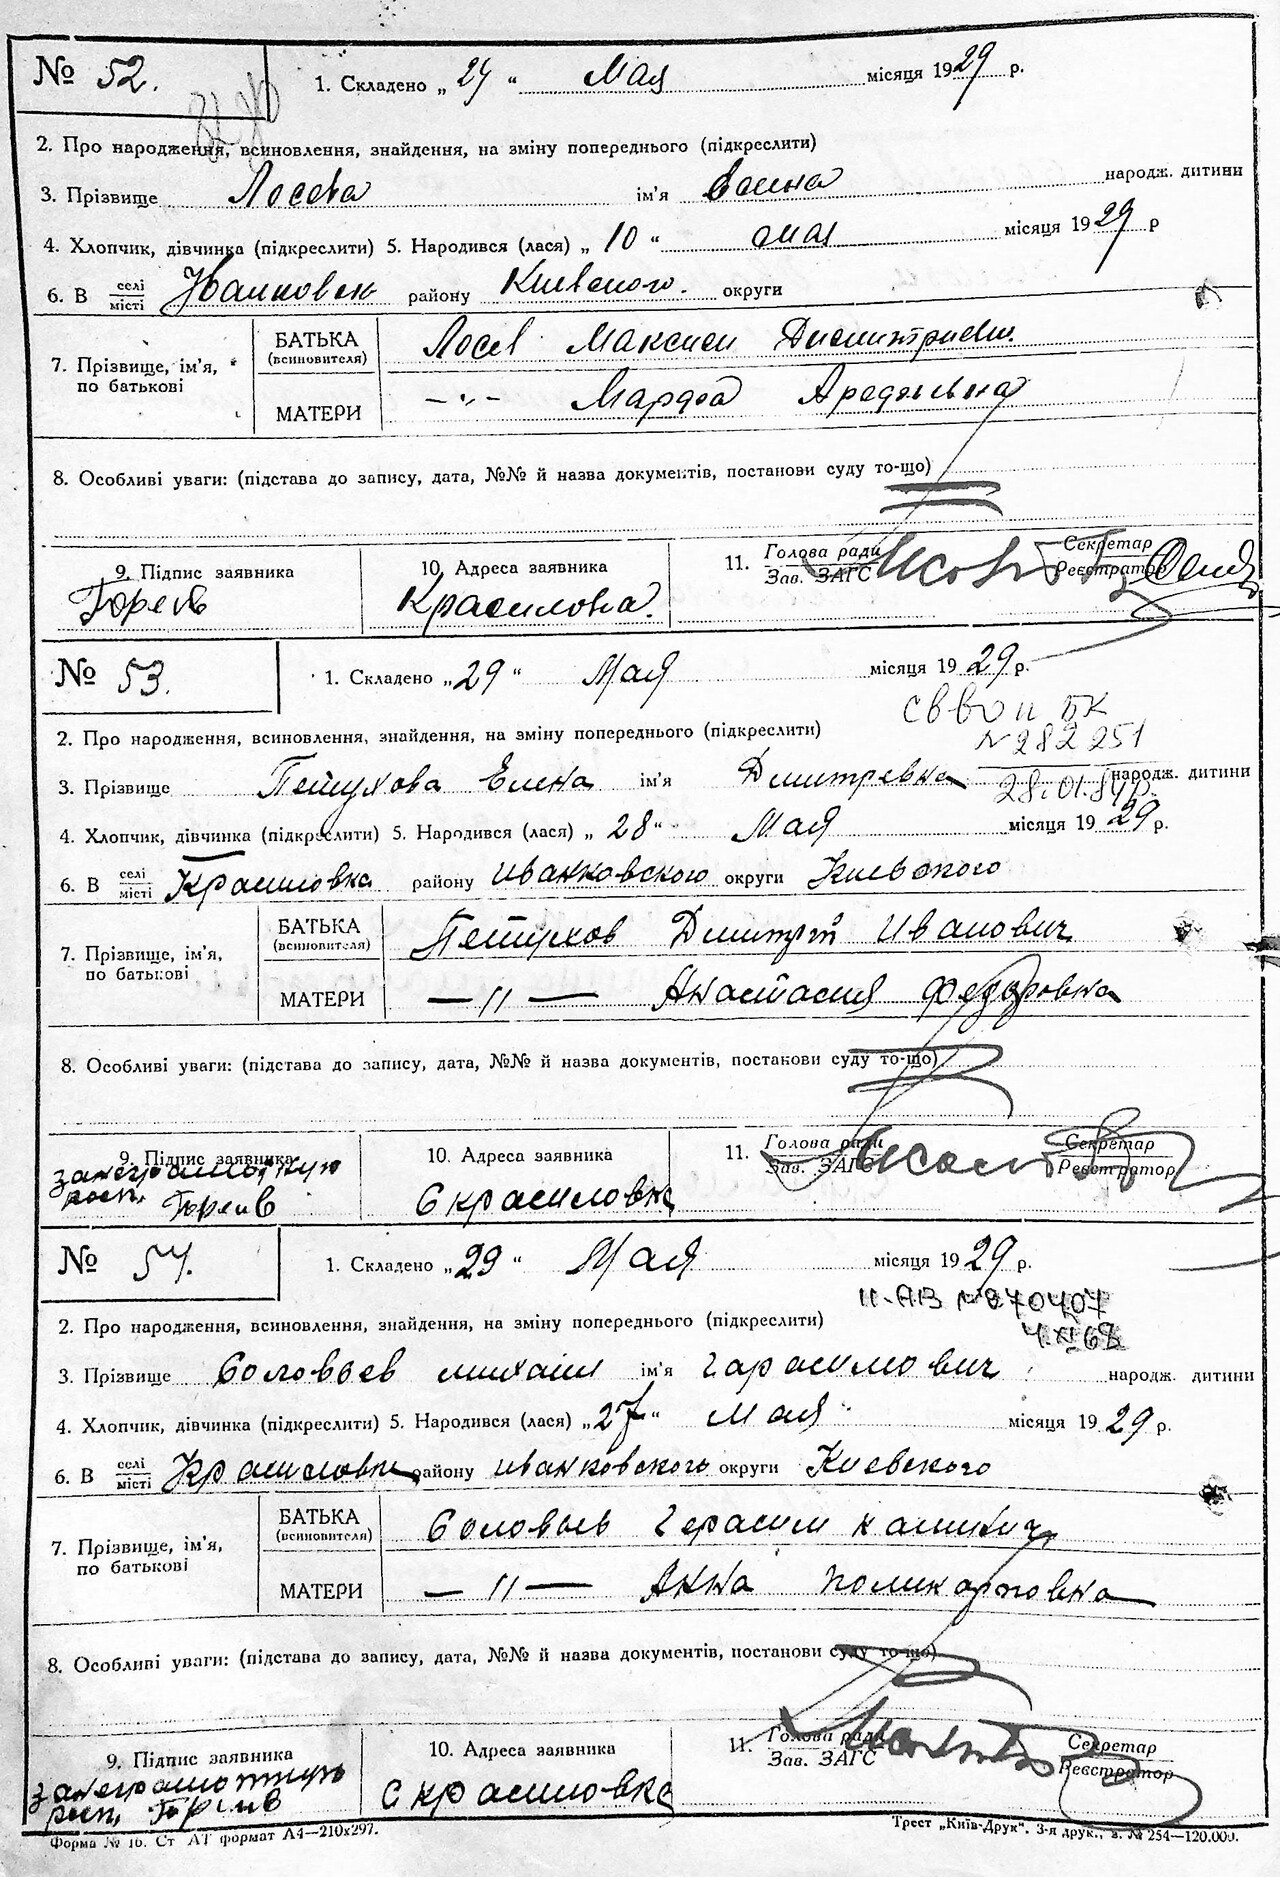 № 52.
1. Складено „ 24 “ Мая місяця 1929 р.
2. Про народження, всиновлення, знайдення, на зміну попереднього (підкреслити)
3. Прізвище Лосева ім'я народж. дитини
4. Хлопчик, дівчинка (підкреслити) 5. Народився (лася) „ 10 “ мая місяця 1929 р
6. В селі/місті району Киевского. округи
7. Прізвище, ім'я, по батькові
БАТЬКА (всиновителя) Лосев Максим
МАТЕРИ —„— Марфа
8. Особливі уваги: (підстава до запису, дата, №№ й назва документів, постанови суду то-що)
9. Підпис заявника
10. Адреса заявника
11. Голова ради Зав. ЗАГС
Секретар Реєстратор
№ 53.
1. Складено „ 29 “ Мая місяця 1929 р.
№ 282251
2. Про народження, всиновлення, знайдення, на зміну попереднього (підкреслити)
3. Прізвище Петухова Елена ім'я Дмитревна народж. дитини
28.01.84р.
4. Хлопчик, дівчинка (підкреслити) 5. Народився (лася) „ 28 “ Мая місяця 1929 р.
6. В селі/місті Красиловка району иванковского округи Киевского
7. Прізвище, ім'я, по батькові
БАТЬКА (всиновителя) Петухов Дмитрий Иванович
МАТЕРИ — 11 — Анастасия Федоровна
8. Особливі уваги: (підстава до запису, дата, №№ й назва документів, постанови суду то-що)
9. Підпис заявника
10. Адреса заявника
11. Голова ради Зав. ЗАГС
Секретар Реєстратор
С красиловка
№ 54.
1. Складено „ 29 “ Мая місяця 1929 р.
II-АВ №270407
2. Про народження, всиновлення, знайдення, на зміну попереднього (підкреслити)
3. Прізвище Соловьев михаил ім'я гарасимович народж. дитини
4. Хлопчик, дівчинка (підкреслити) 5. Народився (лася) „ 27 “ Мая місяця 1929 р.
6. В селі/місті Красиловка району иванковского округи Киевского
7. Прізвище, ім'я, по батькові
БАТЬКА (всиновителя) Герасим
МАТЕРИ — 11 — Анна поликарповна
8. Особливі уваги: (підстава до запису, дата, №№ й назва документів, постанови суду то-що)
9. Підпис заявника
10. Адреса заявника
11. Голова ради Зав. ЗАГС
Секретар Реєстратор
С красиловка
Форма № 16. Ст АТ формат А4—210х297.
Трест „Київ-Друк“. 3-я друк., з. № 254—120.000.